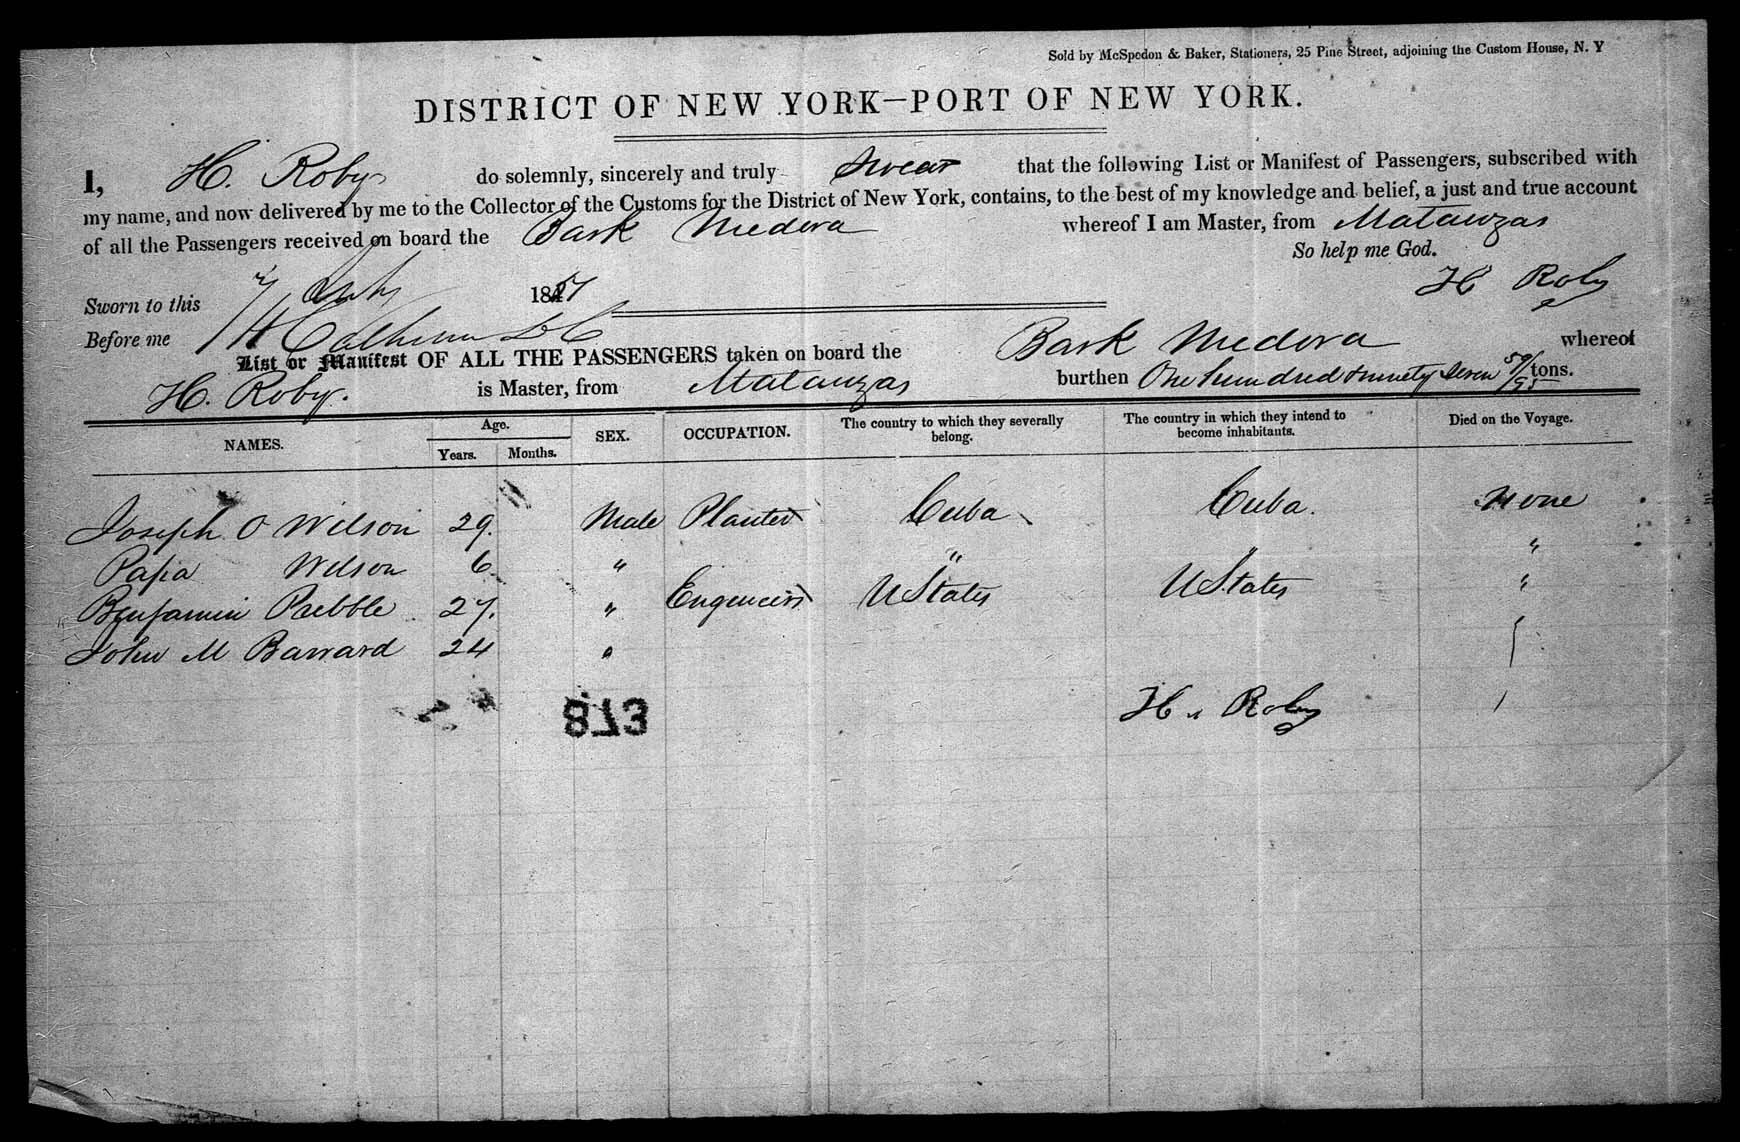 Sold by McSpedon & Baker, Stationers, 25 Pine Street, adjoining the Custom House, N. Y
DISTRICT OF NEW YORK—PORT OF NEW YORK.
I, H. Roby do solemnly, sincerely and truly swear that the following List or Manifest of Passengers, subscribed with
my name, and now delivered by me to the Collector of the Customs for the District of New York, contains, to the best of my knowledge and belief, a just and true account
of all the Passengers received on board the Bark Medora whereof I am Master, from Matanzas
So help me God.
Sworn to this 7 July 185
H Roby
Before me
List or Manifest OF ALL THE PASSENGERS taken on board the Bark Medora whereof
H. Roby. is Master, from Matanzas burthen One hundred & ninety seven /95 tons.
NAMES. Age. Years. Months. SEX. OCCUPATION. The country to which they severally belong. The country in which they intend to become inhabitants. Died on the Voyage.
Joseph O Wilson 29. Male Planter Cuba Cuba. None
Papa Wilson 6 " " " "
Benjamin Prebble 27. " Engineers U States U States "
John M Barrard 24 "
873
H. Roby